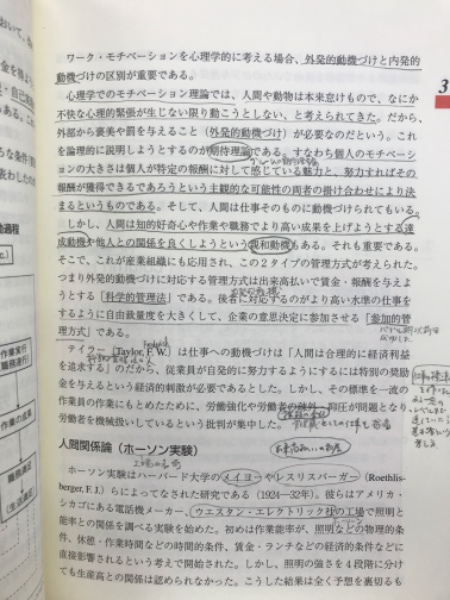 おいて、
金を得よう
ワーク・モチベーションを心理学的に考える場合、外発的動機づけと内発的
動機づけの区別が重要である。
心理学でのモチベーション理論では、人間や動物は本来怠けもので、なにか
不快な心理的緊張が生じない限り動こうとしない、と考えられてきた。だから、
外部から褒美や罰を与えること(外発的動機づけ)が必要なのだという。これ
を論理的に説明しようとするのが期待理論である。すなわち個人のモチベーシ
ョンの大きさは個人が特定の報酬に対して感じている魅力と、努力すればその
報酬が獲得できるであろうという主観的な可能性の両者の掛け合わせにより決
まるというものである。そして、人間は仕事そのものに動機づけられてもいる。
しかし、人間は知的好奇心や作業や職務でより高い成果を上げようとする達
成動機や他人との関係を良くしようという親和動機もある。それも重要である。
そこで、これが産業組織にも応用され、この2タイプの管理方式が考えられた。
つまり外発的動機づけに対応する管理方式は出来高払いで賃金・報酬を与えよ
うとする「科学的管理法」である。後者に対応するのがより高い水準の仕事を
するように自由裁量度を大きくして、企業の意思決定に参加させる「参加的管
理方式」である。
テイラー(Taylor, F.W.)は仕事への動機づけは「人間は合理的に経済利益
を追求する」のだから、従業員が自発的に努力するようにするには特別の奨励
金を与えるという経済的刺激が必要であるとした。しかし、その標準を一流の
作業員の作業にもとめたために、労働強化や労働者の 抑圧が問題となり、
労働者を機械扱いしているという批判が集中した。
人間関係論(ホーソン実験)
ホーソン実験はハーバード大学のメイヨーやレスリスバーガー(Roethlis-
berger, F.J.)らによってなされた研究である(1924—32年)。彼らはアメリカ・
シカゴにある電話機メーカー、ウエスタン・エレクトリック社の工場で照明と
能率との関係を調べる実験を始めた。初めは作業能率が、照明などの物理的条
件、休憩・作業時間などの時間的条件、賃金・ランチなどの経済的条件などに
直接影響されるという考えで開始された。しかし、照明の強さを4段階に分け
ても生産高との関係は認められなかった。こうした結果は全く予想を裏切るも
3
作業の成果
職務満足
生活満足